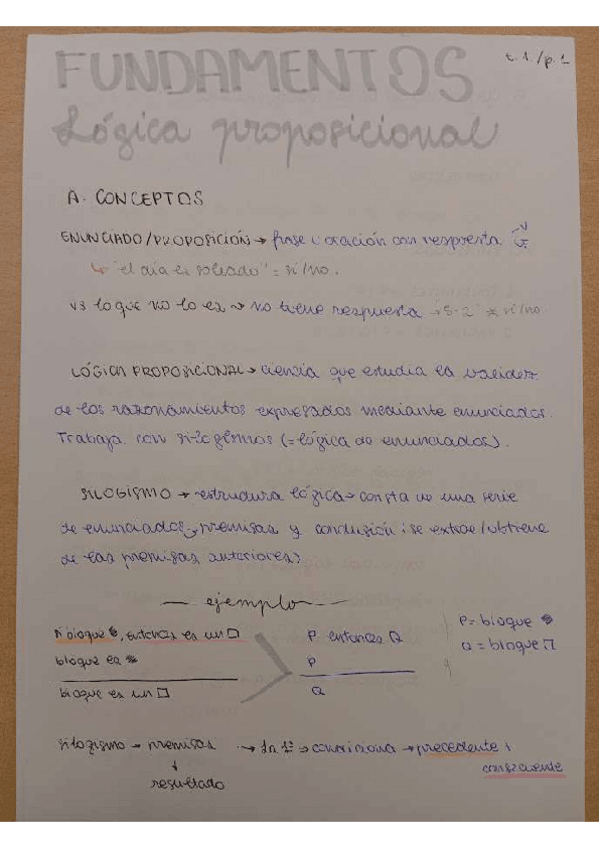 FUNDAMENTOS
t.1./p.1
Lógica proposicional
A. CONCEPTOS
ENUNCIADO/PROPOSICIÓN → frase u oración con respuesta V F
↳ "el día es soleado" = sí/no.
vs lo que no lo es → no tiene respuesta → "5·2" ≠ sí/no.
LÓGICA PROPOSICIONAL → ciencia que estudia la validez
de los razonamientos expresados mediante enunciados.
Trabaja con silogismos (= lógica de enunciados).
SILOGISMO → estructura lógica → consta de una serie
de enunciados → premisas y conclusión (se extrae/obtiene
de las premisas anteriores)
ejemplo
bloque, entonces es un □
P entonces Q
P = bloque
bloque es
P
Q = bloque □
bloque es un □
Q
silogismo → premisas → 1ª → condiciona → precedente y
↓
consecuente
resultado